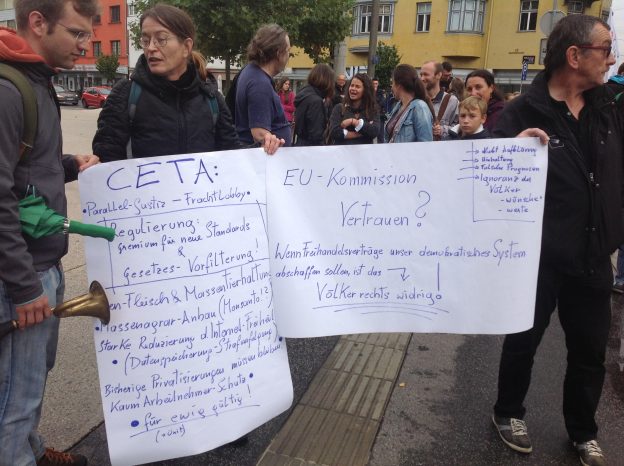 CETA:
• Parallel-Justiz – Frachtlobby •
Regulierung:
Gremium für neue Standards
&
Gesetzes-Vorfilterung!
en-Fleisch & Massentierhaltung
• Massenagrar-Anbau (Monsanto..)
Starke Reduzierung d. Internet-Freiheit
• (Datenspeicherung-Strafverfolgung)
Bisherige Privatisierungen müssen bleiben
Kaum Arbeitnehmer-Schutz •
• für ewig gültig!
EU-Kommission
Vertrauen?
Wenn Freihandelsverträge unser demokratisches System
abschaffen sollen, ist das
Völkerrechts widrig!
Falsche Prognosen
Ignoranz der
Völker
- wünsche
- werte